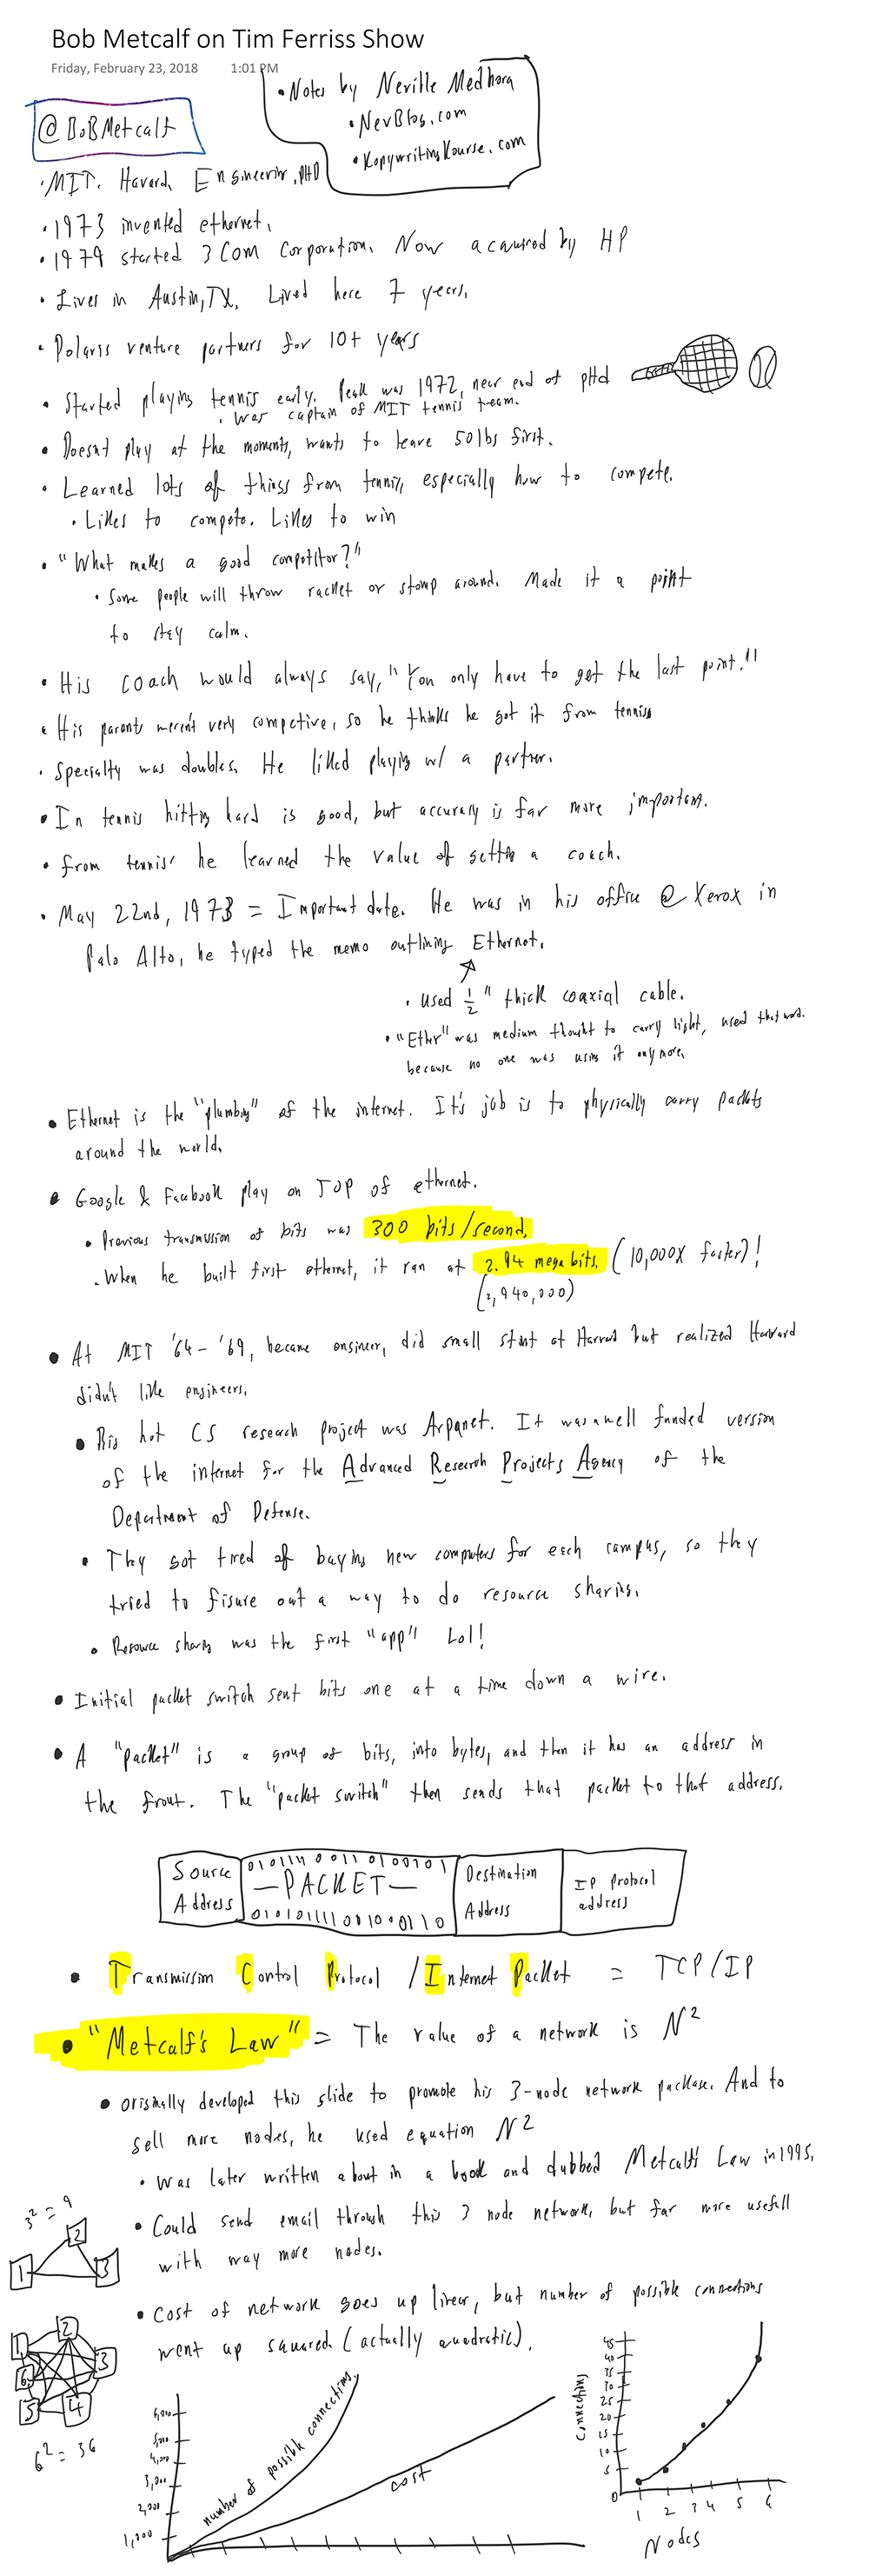 Bob Metcalf on Tim Ferriss Show
Friday, February 23, 2018 1:01 PM
• Notes by Neville Medhora
• NevBlog.com
• KopywritingKourse.com
@BoBMetcalf
• MIT. Havard, Engineering, PHD
• 1973 invented ethernet.
• 1979 started 3Com Corporation. Now acquired by HP
• Lives in Austin, TX. Lived here 7 years.
• Polaris venture partners for 10+ years
• Started playing tennis early. Peak was 1972, near end of pHd
• Was captain of MIT tennis team.
• Doesnt play at the moments, wants to leave 50lbs first.
• Learned lots of things from tennis, especially how to compete.
• Likes to compete. Likes to win
• "What makes a good competitor?"
• Some people will throw racket or stomp around. Made it a point
to stay calm.
• His coach would always say, "You only have to get the last point."
• His parents weren't very competive, so he thinks he got it from tennis
• Specialty was doubles. He liked playing w/ a partner.
• In tennis hitting hard is good, but accuracy is far more important.
• From tennis he learned the value of getting a coach.
• May 22nd, 1973 = Important date. He was in his office @ Xerox in
Palo Alto, he typed the memo outlining Ethernet.
• used 1/2" thick coaxial cable.
• "Ether" was medium thought to carry light, used that word
because no one was using it anymore.
• Ethernet is the "plumbing" of the internet. It's job is to physically carry packets
around the world.
• Google & Facebook play on TOP of ethernet.
• Previous transmission of bits was 300 bits/second.
• When he built first ethernet, it ran at 2.94 mega bits. (10,000X faster)!
(2,940,000)
• At MIT '64 - '69, became engineer, did small stint at Harvard but realized Harvard
didn't like engineers.
• Big hot CS research project was Arpanet. It was a well funded version
of the internet for the Advanced Research Projects Agency of the
Department of Defense.
• They got tired of buying new computers for each campus, so they
tried to figure out a way to do resource sharing.
• Resource sharing was the first "app" Lol!
• Initial packet switch sent bits one at a time down a wire.
• A "packet" is a group of bits, into bytes, and then it has an address in
the front. The "packet switch" then sends that packet to that address.
Source Address
—PACKET—
Destination Address
IP Protocol address
• Transmission Control Protocol / Internet Packet = TCP/IP
• "Metcalf's Law" = The value of a network is N²
• Originally developed this slide to promote his 3-node network package. And to
sell more nodes, he used equation N²
• Was later written about in a book and dubbed Metcalf's Law in 1995.
• Could send email through this 3 node network, but far more usefull
with way more nodes.
3² = 9
1 2 3
• Cost of network goes up linear, but number of possible connections
went up squared (actually quadratic).
1 2 3 4 5 6
6² = 36
6,000
5,000
4,000
3,000
2,000
1,000
number of possible connections
cost
Connections
45
40
35
30
25
20
15
10
5
0
1 2 3 4 5 6
Nodes